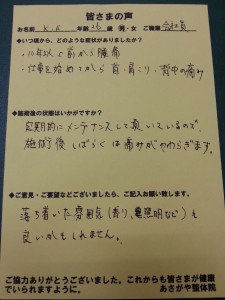 皆さまの声
お名前 K.K 年齢 36 歳 男・女 ご職業 会社員
◆いつ頃から、どのような症状がありましたか?
・10年以上前から腰痛
・仕事を始めてから首・肩こり・背中の痛み
◆施術後の状態はいかがですか?
定期的にメンテナンスして頂いているので、
施術後しばらくは痛みがやわらぎます。
◆ご意見・ご要望などございましたら、ご記入お願い致します。
落ち着いた雰囲気(香り、照明など)も
良いかもしれません。
ご協力ありがとうございました。これからも皆さまが健康
でいられますように。 あさがや整体院